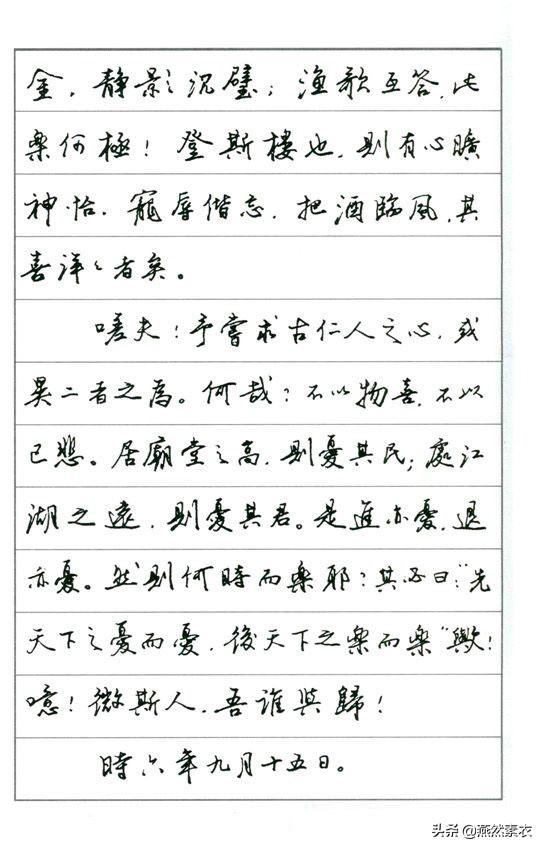 金，靜影沉璧；漁歌互答，此
樂何極！登斯樓也，則有心曠
神怡，寵辱偕忘，把酒臨風，其
喜洋々者矣。
嗟夫！予嘗求古仁人之心，或
異二者之為。何哉？不以物喜，不以
己悲。居廟堂之高，則憂其民；處江
湖之遠，則憂其君。是進亦憂，退
亦憂。然則何時而樂耶？其必曰："先
天下之憂而憂，後天下之樂而樂"歟！
噫！微斯人，吾誰與歸！
時六年九月十五日。
头条 @燕然素衣